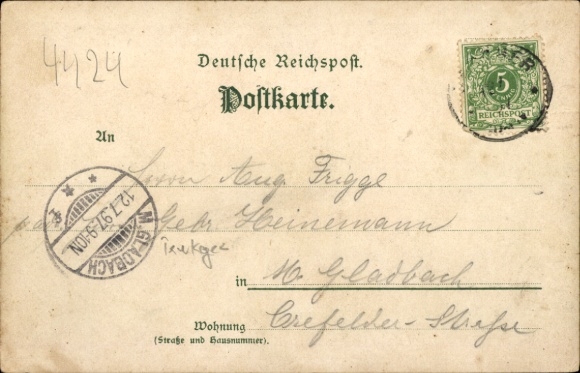 4424
Deutsche Reichspost.
Postkarte.
5
REICHSPOST
An
Herrn Aug. Frigge
Gebr. Heinemann
M. GLADBACH
12.7.97.9-10N
in M. Gladbach
Wohnung Crefelder-Straße
(Straße und Hausnummer).